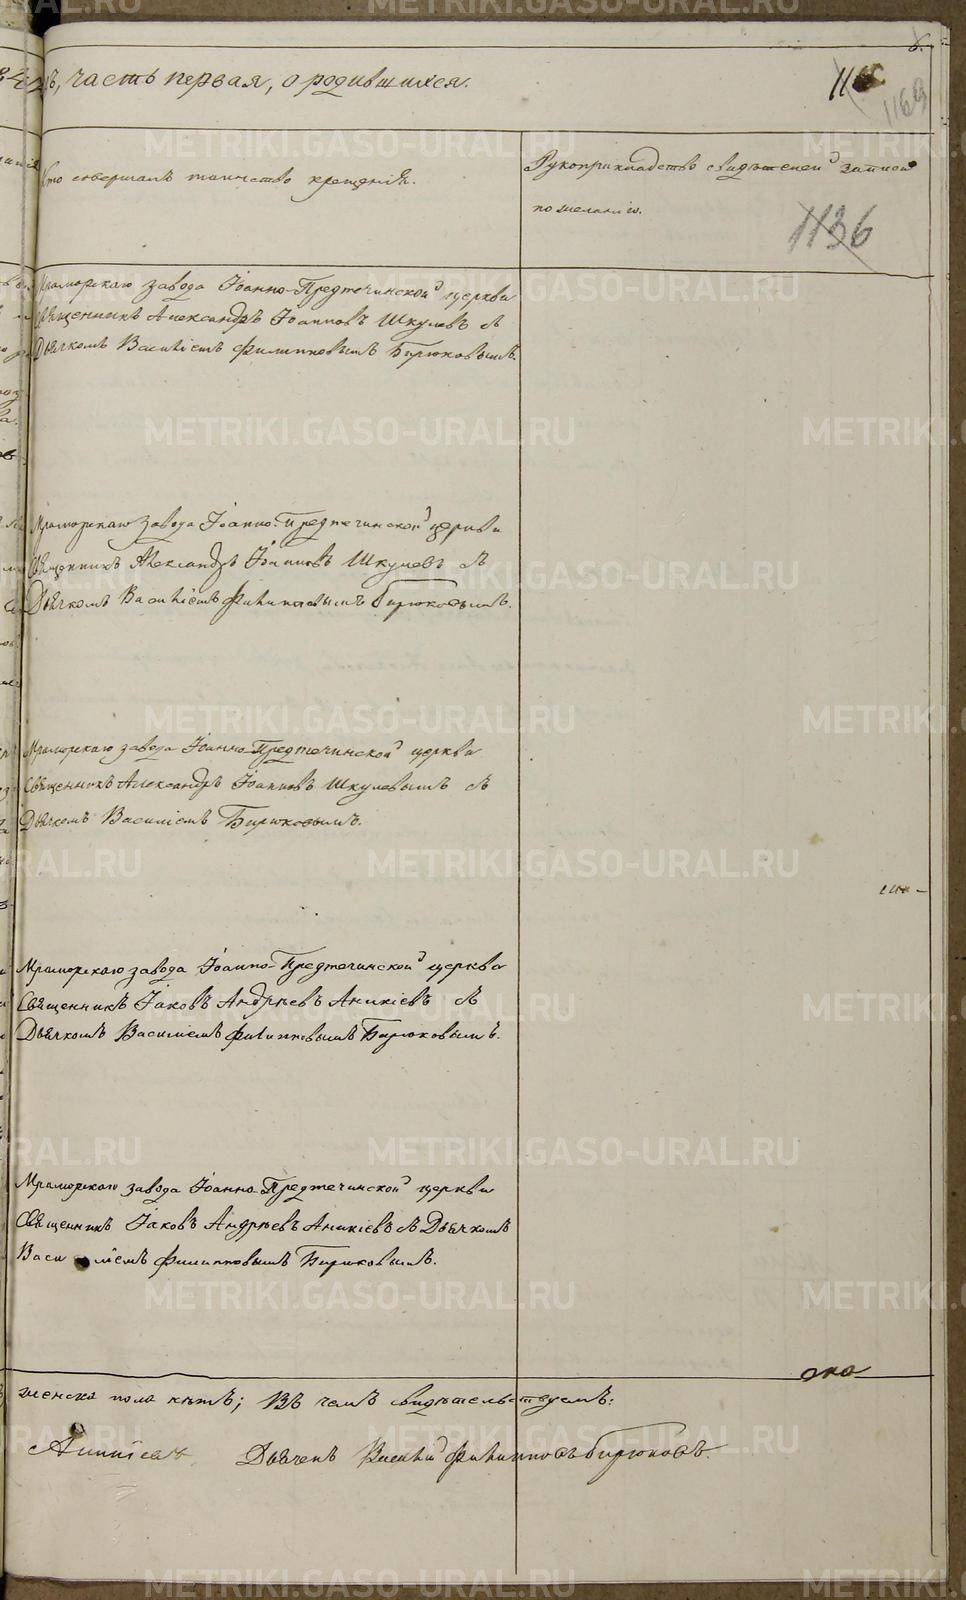 ѣ, часть первая, о родившихся.
6.
1169
1136
Кто совершалъ таинство крещенія.
Рукоприкладство свидѣтелей записей
по желанію.
Мраморскаго завода Іоанно-Предтечинской церкви
Священникъ Александръ Іоанновъ Шкулевъ съ
Дьячкомъ Василіемъ Филипповымъ Бирюковымъ.
Мраморскаго завода Іоанно-Предтечинской церкви
Священникъ Александръ Іоанновъ Шкулевъ съ
Дьячкомъ Василіемъ Филипповымъ Бирюковымъ.
Мраморскаго завода Іоанно-Предтечинской церкви
Священникъ Александръ Іоанновъ Шкулевымъ съ
Дьячкомъ Василіемъ Бирюковымъ.
Мраморскаго завода Іоанно-Предтечинской церкви
Священникъ Іаковъ Андреевъ Аникіевъ съ
Дьячкомъ Василіемъ Филипповымъ Бирюковымъ.
Мраморскаго завода Іоанно-Предтечинской церкви
Священникъ Іаковъ Андреевъ Аникіевъ съ Дьячкомъ
Василіемъ Филипповымъ Бирюковымъ.
женска пола нѣтъ; Въ чемъ свидѣтельствуемъ:
Аникіевъ Дьячекъ Василій Филипповъ Бирюковъ.
METRIKI.GASO-URAL.RU